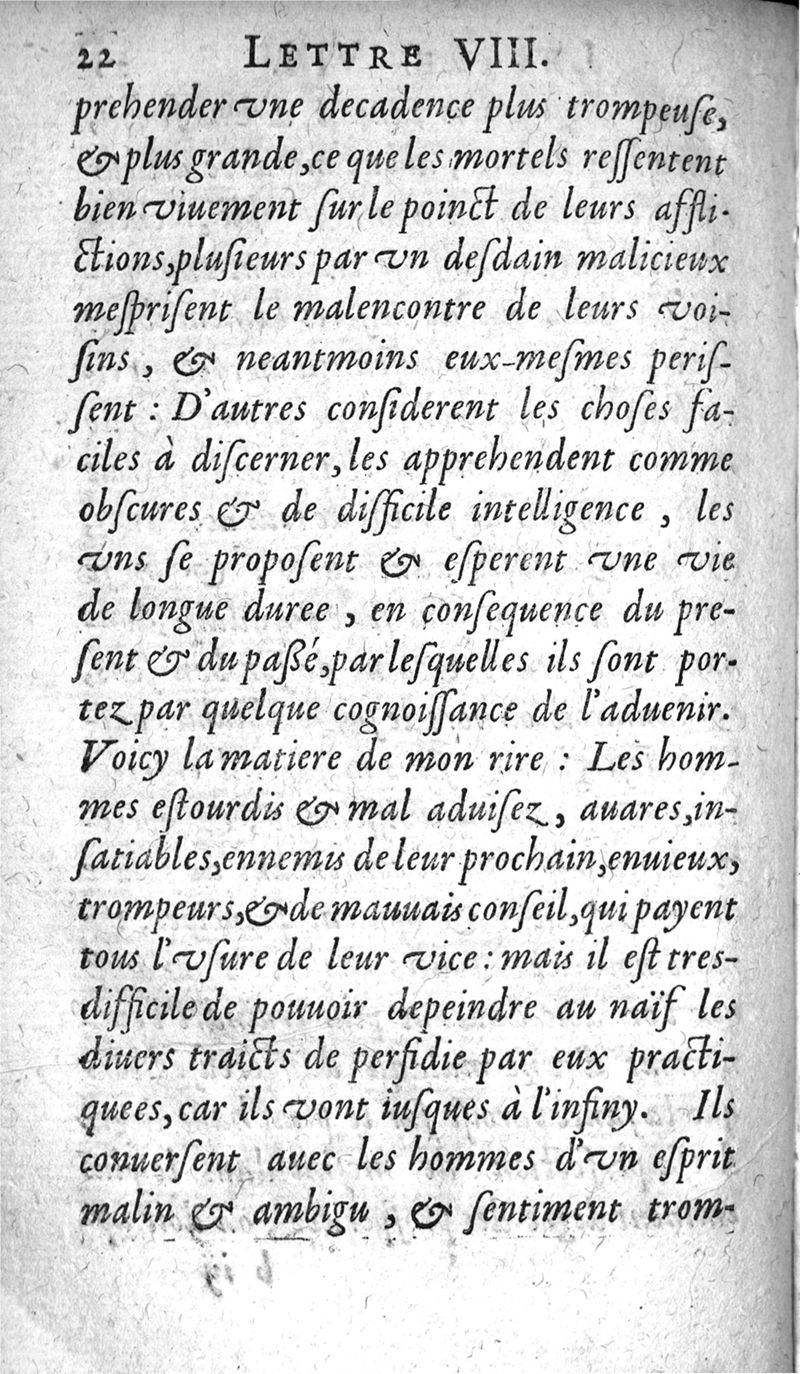 22 LETTRE VIII.
prehender vne decadence plus trompeuſe,
& plus grande, ce que les mortels reſſentent
bien viuement ſur le poinct de leurs affli-
ctions, pluſieurs par vn deſdain malicieux
meſpriſent le malencontre de leurs voi-
ſins, & neantmoins eux-meſmes periſ-
ſent : D'autres conſiderent les choſes fa-
ciles à diſcerner, les apprehendent comme
obſcures & de difficile intelligence, les
vns ſe propoſent & eſperent vne vie
de longue duree, en conſequence du pre-
ſent & du paßé, par leſquelles ils ſont por-
tez par quelque cognoiſſance de l'aduenir.
Voicy la matiere de mon rire : Les hom-
mes eſtourdis & mal aduiſez, auares, in-
ſatiables, ennemis de leur prochain, enuieux,
trompeurs, & de mauuais conſeil, qui payent
tous l'vſure de leur vice : mais il eſt tres-
difficile de pouuoir depeindre au naïf les
diuers traicts de perfidie par eux practi-
quees, car ils vont iuſques à l'infiny. Ils
conuerſent auec les hommes d'vn eſprit
malin & ambigu, & ſentiment trom-